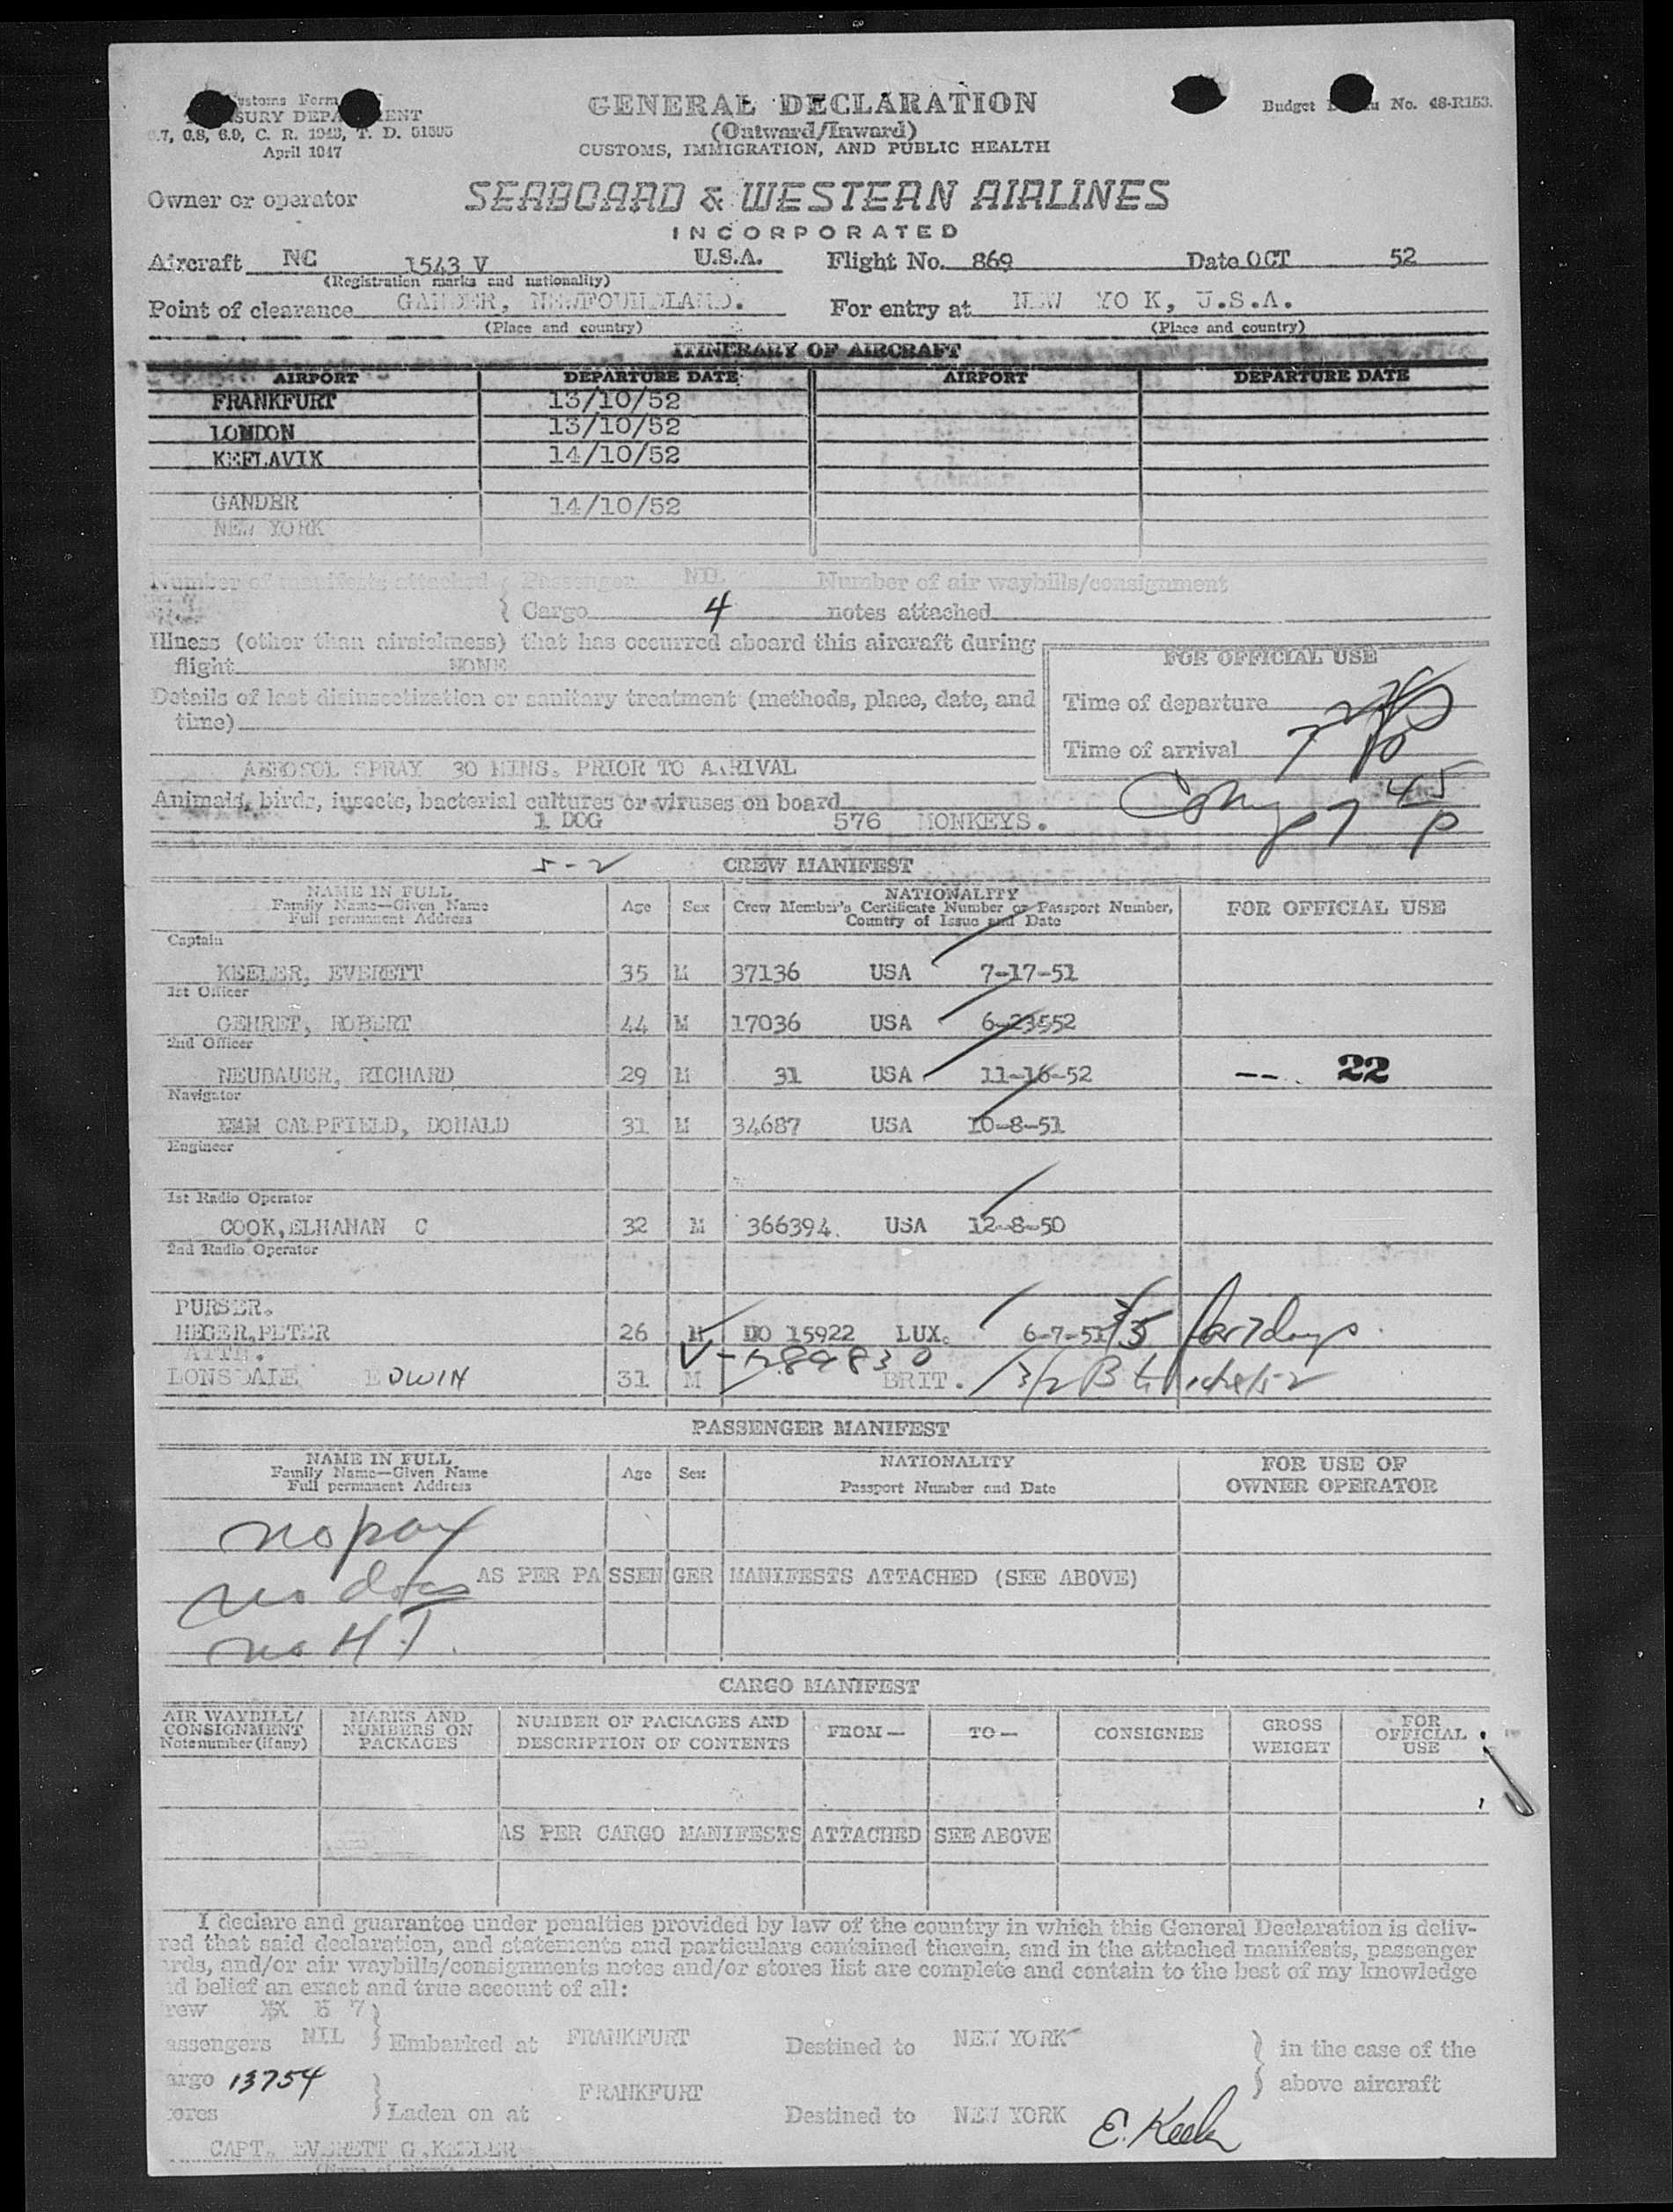 GENERAL DECLARATION
(Outward/Inward)
CUSTOMS, IMMIGRATION, AND PUBLIC HEALTH
April 1947
Budget No. 48-R153.
Owner or operator SEABOARD & WESTERN AIRLINES
INCORPORATED
Aircraft NC 1543 V U.S.A. Flight No. 869 Date OCT 52
(Registration marks and nationality)
Point of clearance GANDER, NEWFOUNDLAND. For entry at NEW YO K, U.S.A.
(Place and country) (Place and country)
ITINERARY OF AIRCRAFT
AIRPORT DEPARTURE DATE AIRPORT DEPARTURE DATE
FRANKFURT 13/10/52
LONDON 13/10/52
KEFLAVIK 14/10/52
GANDER 14/10/52
NEW YORK
Number of manifests attached { Passenger Number of air waybills/consignment
{ Cargo 4 notes attached
Illness (other than airsickness) that has occurred aboard this aircraft during
flight NONE
FOR OFFICIAL USE
Details of last disinsectization or sanitary treatment (methods, place, date, and
time)
Time of departure
Time of arrival
AEROSOL SPRAY 30 MINS. PRIOR TO ARRIVAL
Animals, birds, insects, bacterial cultures or viruses on board
1 DOG 576 MONKEYS.
7 45 p
5-2
CREW MANIFEST
NAME IN FULL
Family Name—Given Name
Full permanent Address
Age Sex
NATIONALITY
Crew Member's Certificate Number or Passport Number,
Country of Issue and Date
FOR OFFICIAL USE
Captain
KEELER, EVERETT 35 M 37136 USA 7-17-51
1st Officer
GEHRET, ROBERT 44 M 17036 USA 6-23552
2nd Officer
NEUBAUER, RICHARD 29 M 31 USA 11-16-52 --. 22
Navigator
CAMPFIELD, DONALD 31 M 34687 USA 10-8-51
Engineer
1st Radio Operator
COOK,ELHANAN C 32 M 366394 USA 12-8-50
2nd Radio Operator
PURSER.
HEGER,PETER 26 M DO 15922 LUX. 6-7-51 3/5 for 7 days.
ATTN.
LONSDALE EDWIN 31 M BRIT. 3/2
PASSENGER MANIFEST
NAME IN FULL
Family Name—Given Name
Full permanent Address
Age Sex
NATIONALITY
Passport Number and Date
FOR USE OF
OWNER OPERATOR
no pax
AS PER PASSENGER MANIFESTS ATTACHED (SEE ABOVE)
no docs
no H.T.
CARGO MANIFEST
AIR WAYBILL/
CONSIGNMENT
Note number (if any)
MARKS AND
NUMBERS ON
PACKAGES
NUMBER OF PACKAGES AND
DESCRIPTION OF CONTENTS
FROM— TO— CONSIGNEE
GROSS
WEIGHT
FOR
OFFICIAL
USE
AS PER CARGO MANIFESTS ATTACHED SEE ABOVE
I declare and guarantee under penalties provided by law of the country in which this General Declaration is deliv-
red that said declaration, and statements and particulars contained therein, and in the attached manifests, passenger
rds, and/or air waybills/consignments notes and/or stores list are complete and contain to the best of my knowledge
d belief an exact and true account of all:
rew 7
assengers NIL } Embarked at FRANKFURT Destined to NEW YORK } in the case of the
argo 13754 above aircraft
ores } Laden on at FRANKFURT Destined to NEW YORK
E. Keeler
CAPT. EVERETT G.KEELER